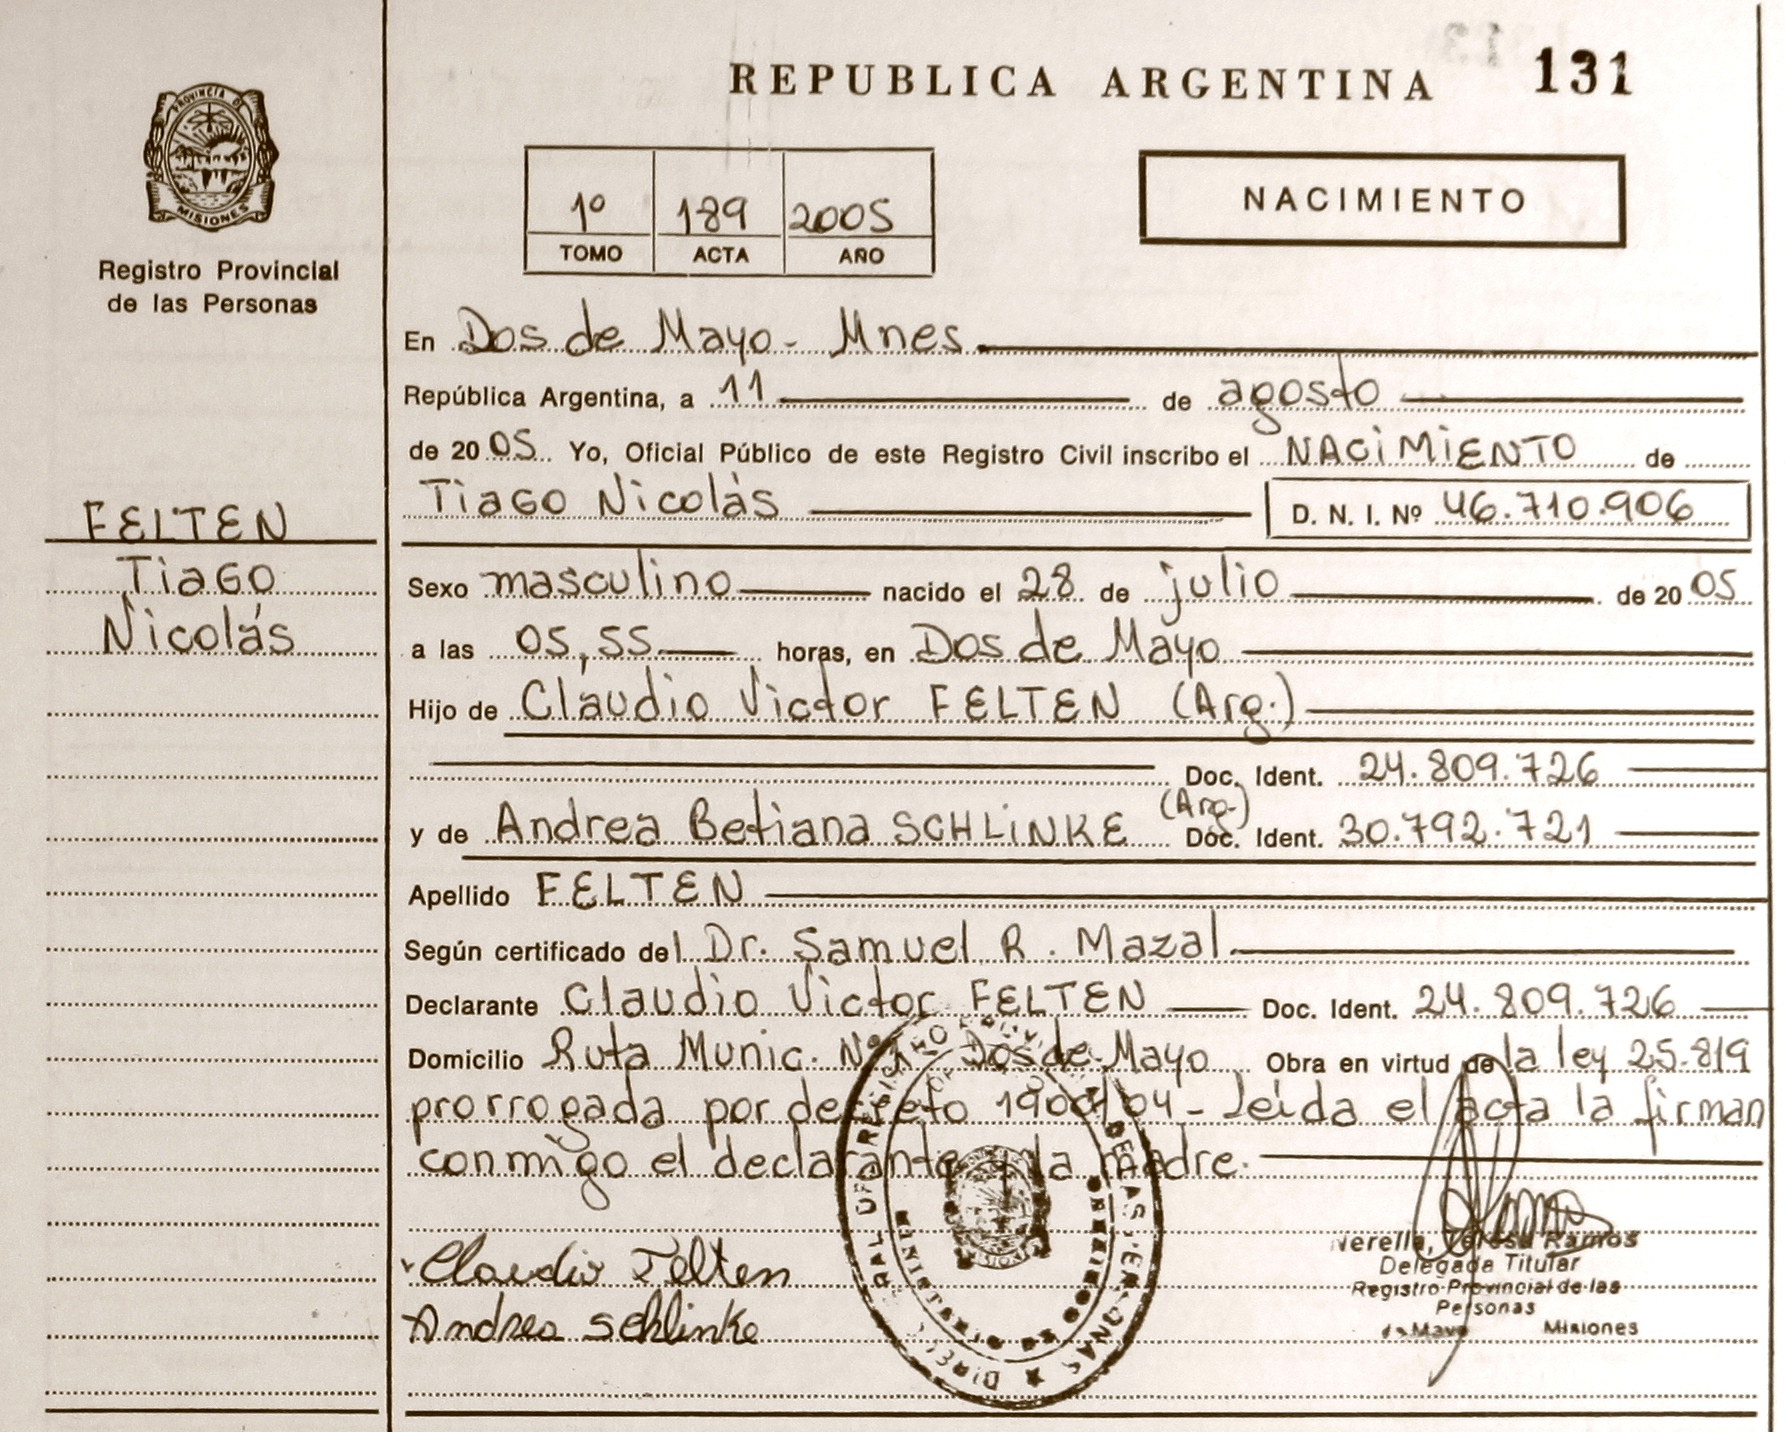 REPUBLICA ARGENTINA 131
PROVINCIA DE
MISIONES
Registro Provincial
de las Personas
1º 189 2005
TOMO ACTA AÑO
NACIMIENTO
En Dos de Mayo - Mnes
República Argentina, a 11 de agosto
de 2005 Yo, Oficial Público de este Registro Civil inscribo el NACIMIENTO de
Tiago Nicolás D. N. I. Nº 46.710.906
FELTEN
Tiago
Nicolás
Sexo masculino nacido el 28 de julio de 2005
a las 05,55 horas, en Dos de Mayo
Hijo de Claudio Victor FELTEN (Arg.)
Doc. Ident. 24.809.726
y de Andrea Betiana SCHLINKE (Arg.) Doc. Ident. 30.792.721
Apellido FELTEN
Según certificado del Dr. Samuel R. Mazal
Declarante Claudio Victor FELTEN Doc. Ident. 24.809.726
Domicilio Ruta Munic. Nº Dos de Mayo Obra en virtud de la ley 25.819
prorrogada por decreto /04 - Leída el acta la firman
conmigo el declarante la madre.
Claudio Felten
Andrea Schlinke
Teresa Ramos
Delegada Titular
Registro Provincial de las
Personas
Mayo Misiones